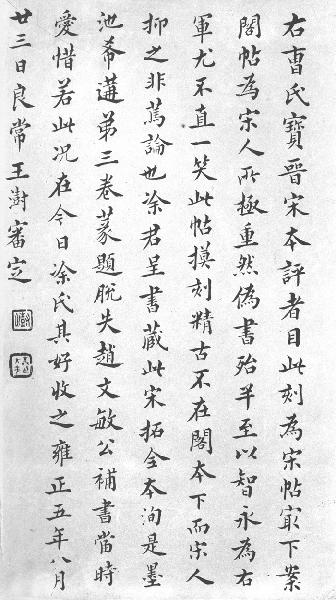 右曹氏寶晉宋本評者目此刻為宋帖冣下案
閣帖為宋人所極重然偽書殆半至以智永為右
軍尤不直一笑此帖摸刻精古不在閣本下而宋人
抑之非篤論也涂君呈書藏此宋拓全本洵是墨
池希遘弟三卷篆題脫失趙文敏公補書當時
愛惜若此況在今日涂氏其好收之雍正五年八月
廿三日良常王澍審定